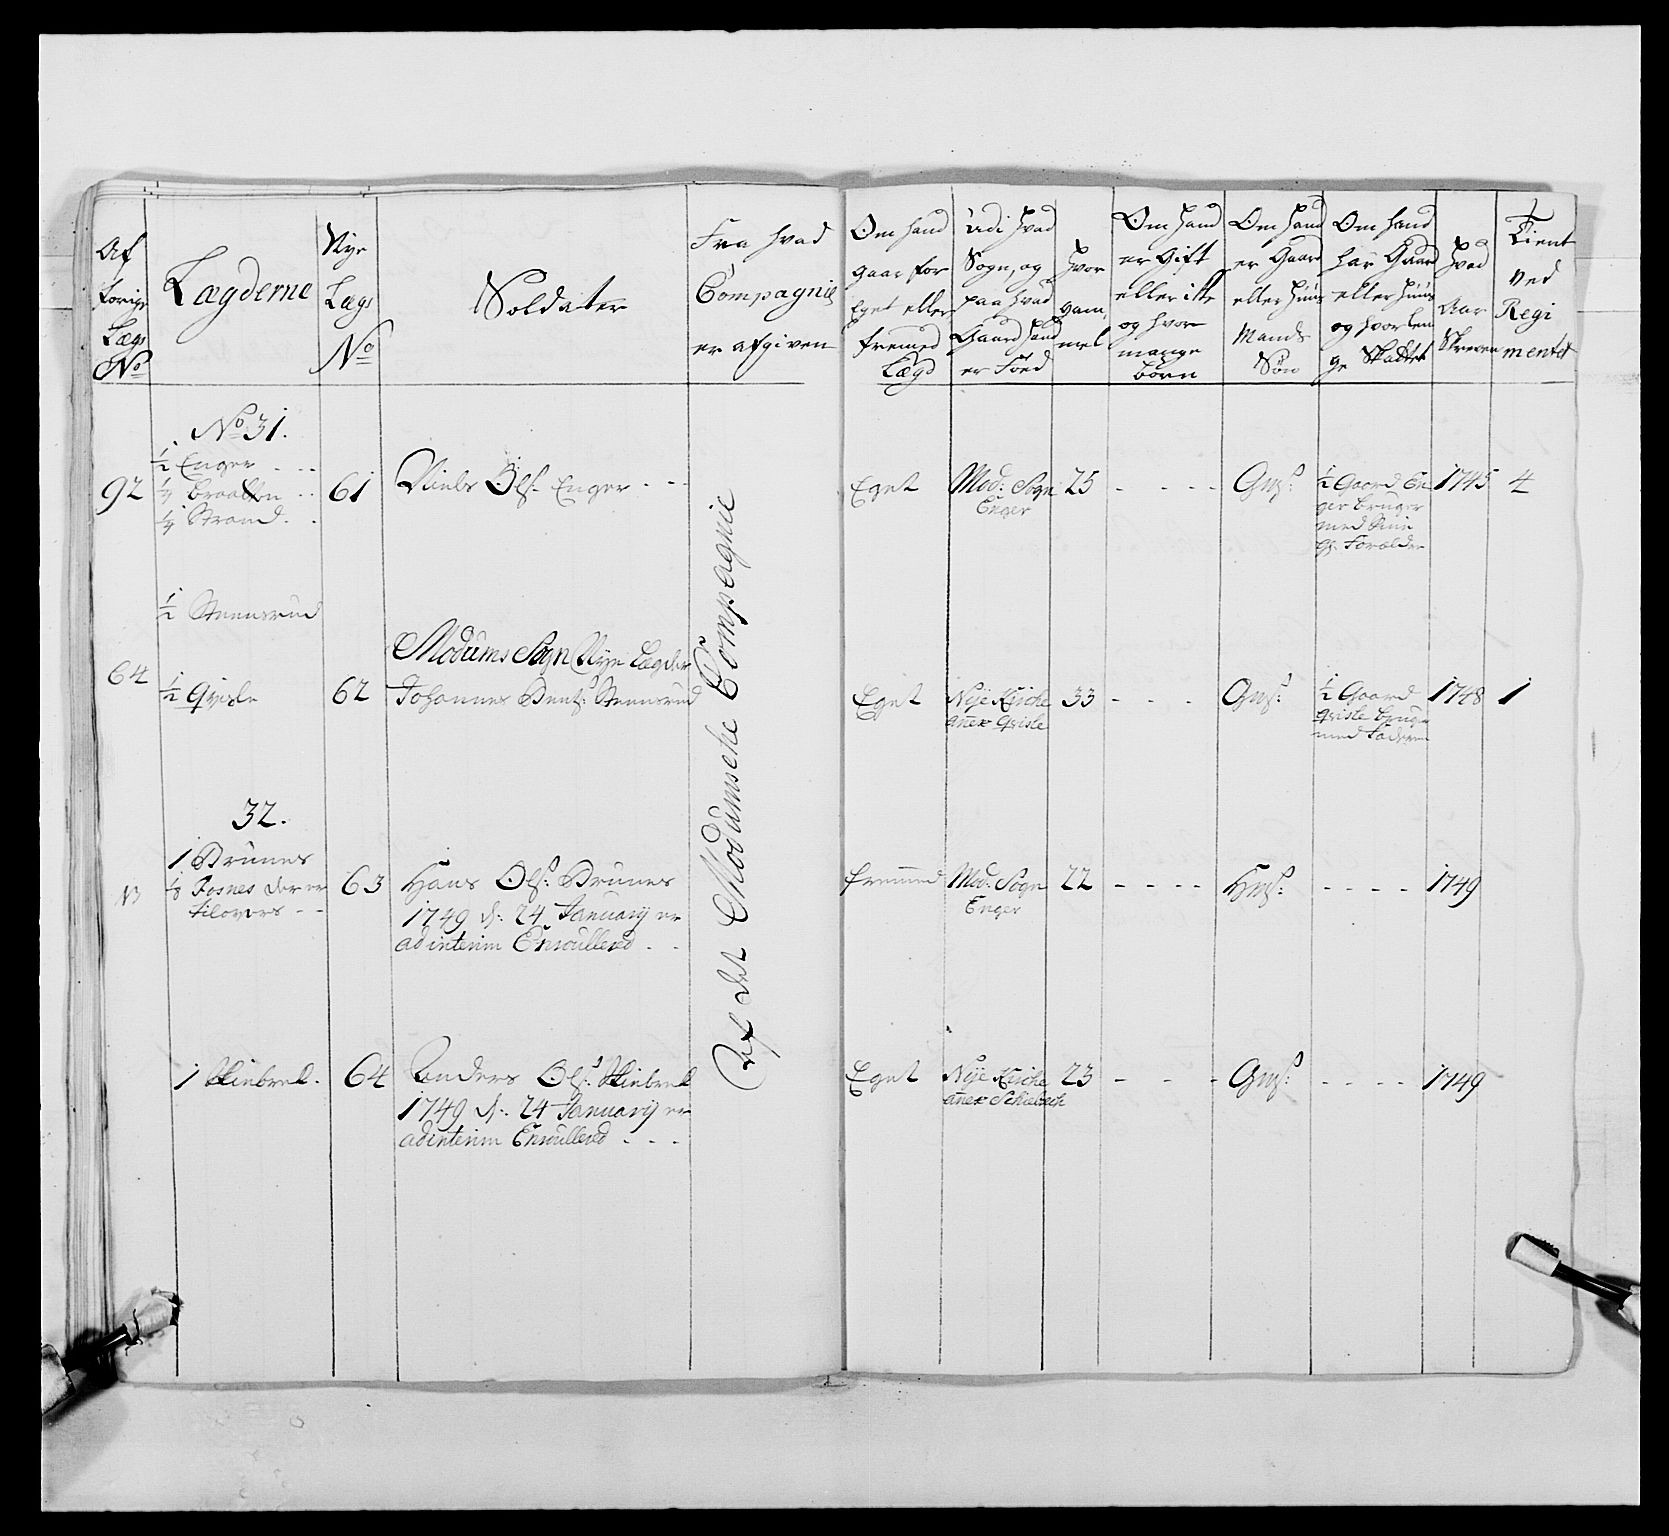 Af
forige
Lægs
No
Lægderne
Nye
Lægs
No
Soldater
Fra hvad
Compagnie
er afgiven
Om hand
gaar for
Eget eller
fremed
Lægd
Udi hvad
Sogn, og
paa hvad
Gaard hand
er Föed
hvor
gam,
mel
Om hand
er Gift
eller ikke
og hvor
mange
börn
Om hand
er Gaard
eller huus
Mands
Sön
Om hand
har Gaard
eller huus
og hvorlen
ge Skattet
hvad
Aar
Skreven
Tient
ved
Regi
mentet
No 31.
92
1/2 Enger - - -
1/4 Braatten - -
1/4 Strand - -
61
Niels Ols: Enger - - -
Eget
Mod: Sogn
Enger
25
- - - -
Gms:
1/2 Gaard En
ger bruger
med Sine
Forælder
1745
4
1/2 Steensrud
Modums Sogn Nye Lægder
64
1/2 Gvisle
62
Johannes Stensrud
Eget
Nye Kirche
anex Gvisle
33
- - -
Gms:
1/2 Gaard
Gvisle bruger
med Faderen
1748
1
32.
1 Drunes
1/8 Fosnes der er
tilovers - -
63
Hans Ols: Drunes
1749 d: 24 January er
ad interim Enroullered - -
fremmed
Mod: Sogn
Enger
22
- - - -
Hms:
- - - -
1749
1 Skinbrek -
64
Anders Ols: Skinbrek
1749 d: 24 January er
ad interim Enroullered - - -
Eget
Nye Kirche
anex
23
- - -
Gms:
- - - -
1749
Af det Modumske Compagnie